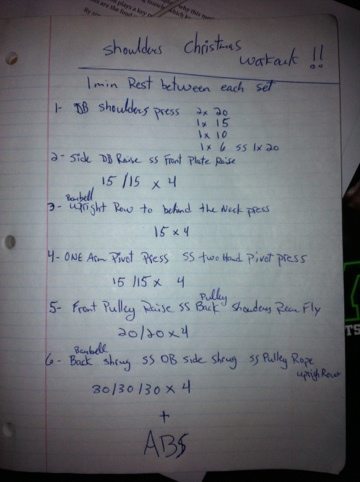 shoulders Christmas
workout !!
1min Rest between each set
1- DB shoulders press 2x 20
1x 15
1x 10
1x 6 SS 1x20
2- Side DB Raise SS Front Plate Raise
15/15 x 4
Barbell
3- Upright Row to behind the Neck press
15 x 4
4- ONE Arm Pivot Press SS two Hand Pivot press
15/15 x 4
Pulley
5- Front Pulley Raise SS Back shoulders Rear Fly
20/20 x 4
Barbell
6- Back shrug SS DB side shrug SS Pulley Rope
upright Row
30/30/30 x 4
+
ABS